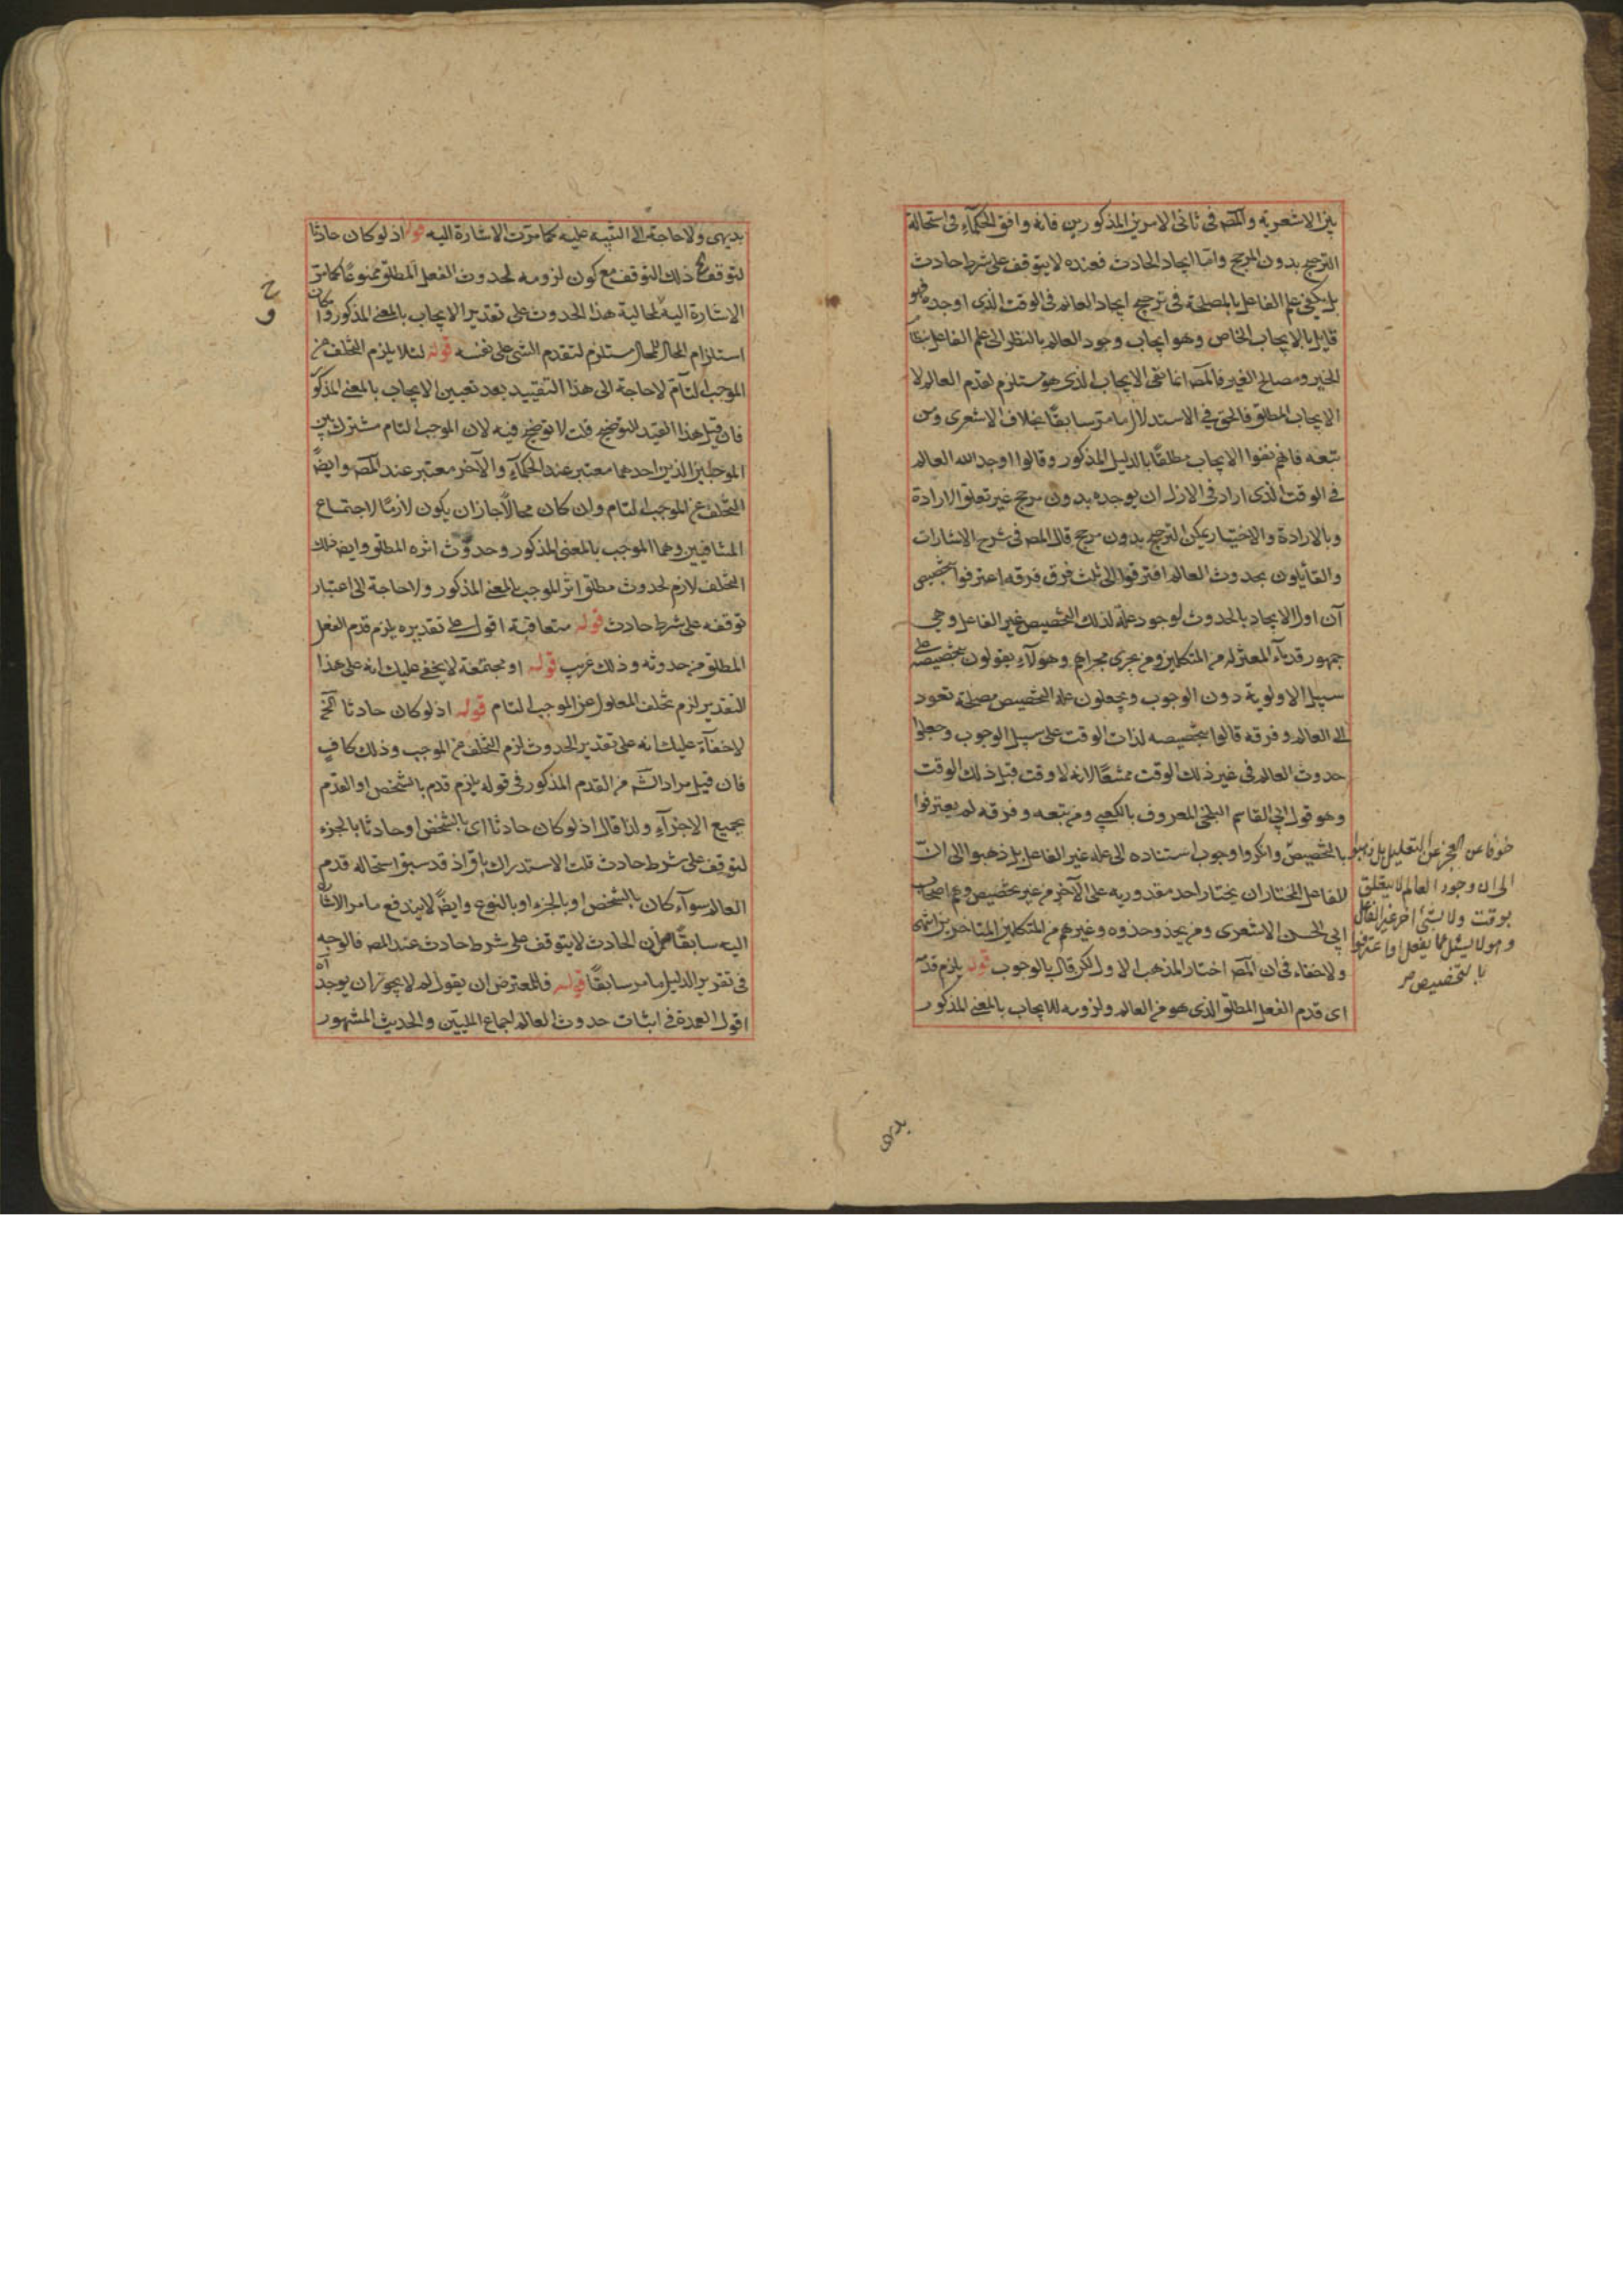 بين الاشعرية والمص في ثانى الامرين المذكورين فانه وافق الحكمآء في استحالة
الترجيح بدون المرجح واما ايجاد الحادث فعنده لا يتوقف على شرط حادث
بل يكفي علم الفاعل بالمصلحة في ترجيح ايجاد العالم في الوقت الذى اوجده فهو
قايل بالايجاب الخاص وهو ايجاب وجود العالم بالنظر الى علم الفاعل
الخير ومصالح الغير فالمص انما نفى الايجاب الذى هو مستلزم لقدم العالم لا
الايجاب المطلق فالحق في الاستدلال ما مر سابقًا بخلاف الاشعرى ومن
تبعه فانهم نفوا الايجاب مطلقًا بالدليل المذكور وقالوا اوجد الله العالم
في الوقت الذى اراد في الازل ان يوجده بدون مرجح غير تعلق الارادة
وبالارادة والاختيار يمكن الترجيح بدون مرجح قال المص في شرح الاشارات
والقايلون بحدوث العالم افترقوا الى ثلث فرق فرقه اعترفوا بتخصيص
آن اول الايجاد بالحدوث لوجود علة لذلك التخصيص غير الفاعل وهي
جمهور قدمآء المعتزله من المتكلمين ومن يجرى مجراهم وهولآء يقولون بتخصيصه على
سبيل الاولوية دون الوجوب ويجعلون علة التخصيص مصلحة تعود
الى العالم وفرقه قالوا بتخصيصه لذات الوقت على سبيل الوجوب وجعلوا
حدوث العالم في غير ذلك الوقت ممتنعًا لانه لا وقت قبل ذلك الوقت
وهو قول ابي القاسم البلخى المعروف بالكعبي ومن تبعه وفرقه لم يعترفوا
بالتخصيص وانكروا وجوب استناده الى علة غير الفاعل بل ذهبوا الى ان
الفاعل المختار ان يختار احد مقدوريه على الآخر من غير تخصيص وهم اصحاب
ابي الحسن الاشعرى ومن يحذو حذوه وغيرهم من المتكلمين المتاخرين انتهى
ولاخفاء في ان المص اختار المذهب الاول لكن قال بالوجوب قوله يلزم قدمه
اى قدم الفعل المطلق الذى هو من العالم ولزومه للايجاب بالمعنى المذكور
خوفا عن العجز عن التعليل بل ذهبوا
الى ان وجود العالم لا يتعلق
بوقت ولا بشئ اخر غير الفاعل
وهو لا يسئل عما يفعل او اعترفوا
بالتخصيص
بديهى
بديهى ولا حاجة الى التنبيه عليه كما مرت الاشارة اليه قوله اذ لو كان حادثا
لتوقف ذلك التوقف مع كون لزومه لحدوث الفعل المطلق ممنوعًا كما مر
الاشارة اليه لمحالية هذا الحدوث على تقدير الايجاب بالمعنى المذكور وان كان
استلزام المحال للمحال مستلزم لتقدم الشى على نفسه قوله لئلا يلزم التخلف عن
الموجب التام لا حاجة الى هذا التقييد بعد تعيين الايجاب بالمعنى المذكور
فان قيل هذا القيد للتوضيح قلت لا توضيح فيه لان الموجب التام مشترك بين
الموجبين الذين احدهما معتبر عند الحكمآء والآخر معتبر عند المص وايضًا
التخلف عن الموجب التام وان كان محالًا جاز ان يكون لازمًا لاجتماع
المتنافيين وهما الموجب بالمعنى المذكور وحدوث اثره المطلق وايض ذلك
التخلف لازم لحدوث مطلق اثر الموجب بالمعنى المذكور ولا حاجة الى اعتبار
توقفه على شرط حادث قوله متعاقبة اقول على تقديره يلزم قدم الفعل
المطلق من حدوثه وذلك غريب قوله او مجتمعة لا يخفى عليك انه على هذا
التقدير لزم تخلف المعلول عن الموجب التام قوله اذ لو كان حادثا الخ
لاخفآء عليك انه على تقدير الحدوث لزم التخلف عن الموجب وذلك كاف
فان قيل مراد الش من القدم المذكور في قوله يلزم قدم بالشخص او القدم
بجميع الاجزآء ولذا قال اذ لو كان حادثا اى بالشخص او حادثا بالجزء
لتوقف على شرط حادث قلت الاستدراك باق اذ قد سبق استحالة قدم
العالم سوآء كان بالشخص او بالجزء او بالنوع وايضًا لا يندفع ما مر الاشارة
اليه سابقًا من ان الحادث لا يتوقف على شرط حادث عند المص فالوجه
في تقرير الدليل ما مر سابقًا قوله فللمعترض ان يقول لم لا يجوز ان يوجد اه
اقول العمدة في اثبات حدوث العالم اجماع المليين والحديث المشهور